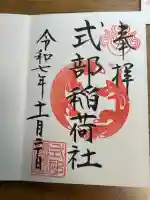 奉拝
式部稲荷社
令和七年十一月二日